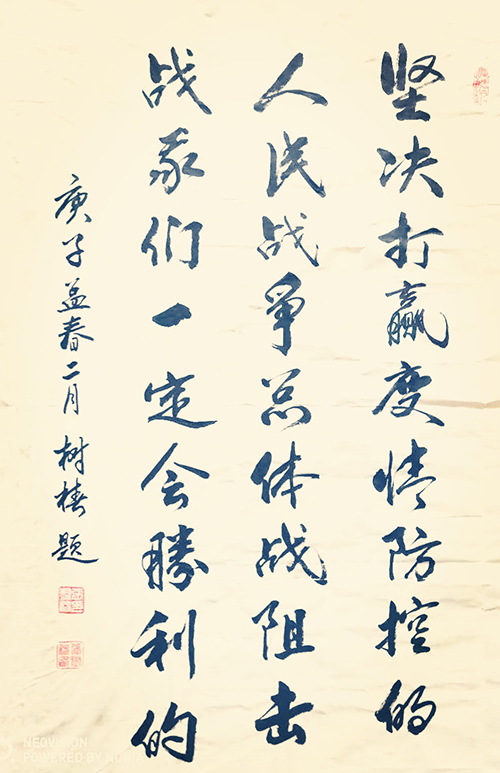 坚决打赢疫情防控的
人民战争总体战阻击
战我们一定会胜利的
庚子孟春二月树椿题
NEOVISION
POWERED BY